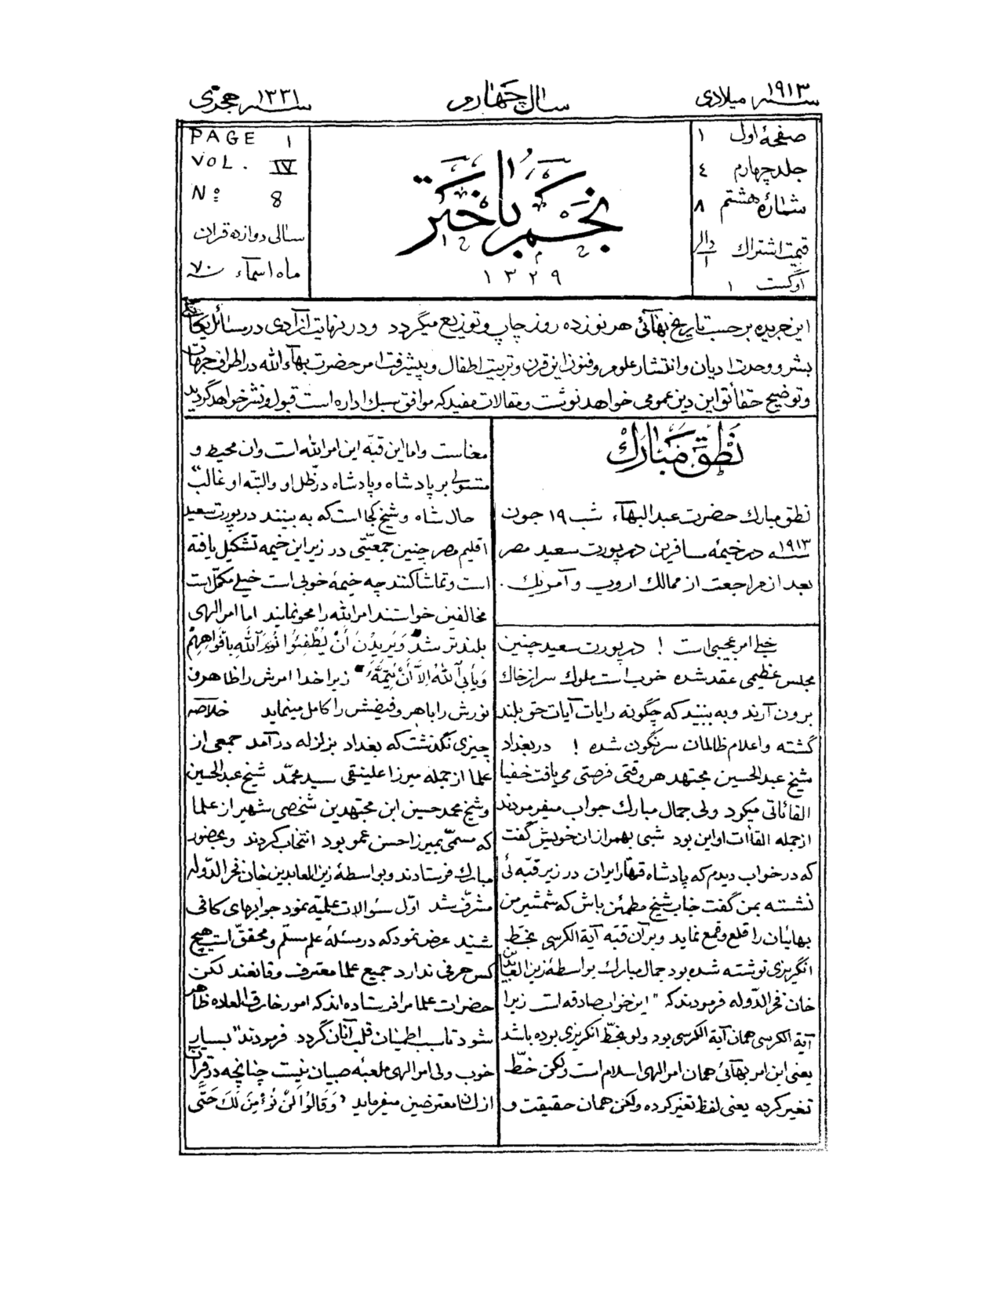 سنه ۱۹۱۳ میلادی
سال چهارم
سنه ۱۳۳۱ هجری
صفحهٔ اول ۱
جلد چهارم ۴
شمارهٔ هشتم ۸
قیمت اشتراک ۱ دالر
اوگست ۱
نجم باختر
۱۳۲۹
PAGE ۱
VOL. IV
Nº 8
سالی دوازده قران
ماه اسماء ۷۰
این جریده برحسب تاریخ بهائی هر نوزده روز چاپ و توزیع میگردد و در نهایت آزادی در مسائل یگانگی
بشر و وحدت ادیان و انتشار علوم و فنون این قرن و تربیت اطفال و پیشرفت امر حضرت بهاءالله در اطراف جهان
و توضیح حقائق این دین عمومی خواهد نوشت و مقالات مفید که موافق سبک اداره است قبول و نشر خواهد گردید
نطق مبارک
نطق مبارک حضرت عبدالبهاء شب ۱۹ جون
سنه ۱۹۱۳ در خیمهٔ مسافرین در پورت سعید مصر
بعد از مراجعت از ممالک اروپ و آمریک.
خیلی امر عجیبی است ! در پورت سعید چنین
مجلس عظیمی عقد شده خوب است ملوک سر از خاک
برون آرند و به بینند که چگونه رایات آیات حق بلند
گشته و اعلام ظالمان سرنگون شده ! در بغداد
شیخ عبدالحسین مجتهد هر وقتی فرصتی می یافت خفیا
القائاتی میکرد ولی جمال مبارک جواب میفرمودند
از جمله القاآت او این بود شبی بهمرازان خویش گفت
که در خواب دیدم که پادشاه قهار ایران در زیر قبه ئی
نشسته بمن گفت جناب شیخ مطمئن باش که شمشیر من
بهائیان را قلع و قمع نماید و بر آن قبه آیة الکرسی بخط
انگریزی نوشته شده بود جمال مبارک بواسطهٔ زین العابدین
خان فخرالدوله فرمودند که "این خواب صادقه است زیرا
آیة الکرسی همان آیة الکرسی بود ولو بخط انگریزی بوده باشد
یعنی این امر بهائی همان امر الهی اسلام است ولکن خط
تغییر کرده یعنی لفظ تغییر کرده ولکن همان حقیقت و
معناست و اما این قبه این امرالله است و آن محیط و
مستولی بر پادشاه و پادشاه در ظل او و البته او غالب"
حال شاه و شیخ کجا است که به بینند در پورت سعید
اقلیم مصر چنین جمعیتی در زیر این خیمه تشکیل یافته
است و تماشا کنند چه خیمهٔ خوبی است خیلی مکمل است
مخالفین خواستند امرالله را محو نمایند اما امر الهی
بلندتر شد "وَ یُرِیدُنَ أَنْ یُطْفِئُوا نُورَ اللهِ بِأَفْوَاهِهِمْ
وَ یَأْبَی اللهُ إِلَّا أَنْ یُتِمَّهُ" زیرا خدا امرش را ظاهر و
نورش را باهر و فیضش را کامل مینماید خلاصه
چیزی نگذشت که بغداد بزلزله در آمد جمعی از
علما از جمله میرزا علینقی سید محمد شیخ عبدالحسین
و شیخ محمد حسین این مجتهدین شخصی شهیر از علما
که مسمی بمیرزا حسن عمو بود انتخاب کردند و بحضور
مبارک فرستادند و بواسطهٔ زین العابدین خان فخرالدوله
مشرف شد اول سئوالات علمیه نمود جوابهای کافی
شنید عرض نمود که در مسئلهٔ علم مسلم و محقق است هیچ
کس حرفی ندارد جمیع علما معترف و قانعند لکن
حضرات علما مرا فرستاده اند که امور خارق العاده ظاهر
شود تا سبب اطمینان قلب آنان گردد فرمودند "بسیار
خوب ولی امر الهی ملعبهٔ صبیان نیست چنانچه در قرآن
از لسان معترضین میفرماید 'وَ قَالُوا لَنْ نُؤْمِنَ لَكَ حَتَّی